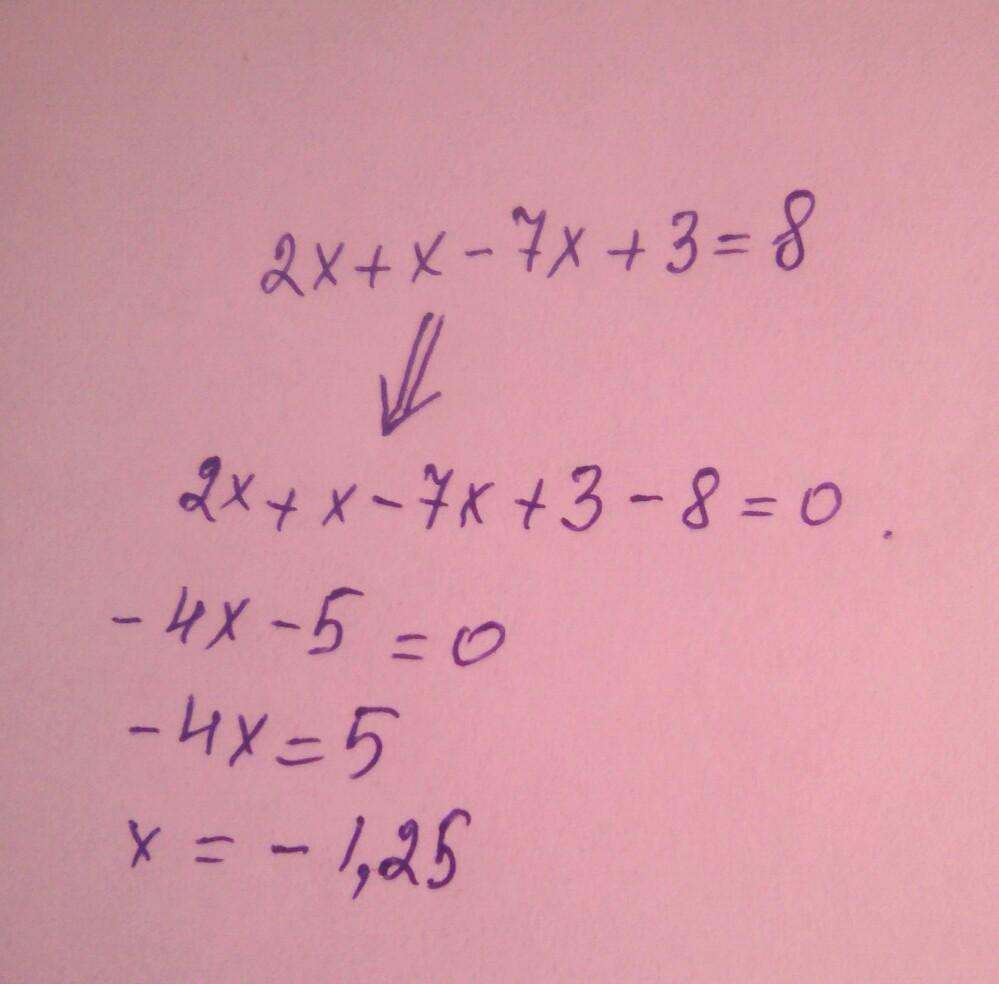 2x+x-7x+3=8
2x+x-7x+3-8=0.
-4x-5=0
-4x=5
x=-1,25